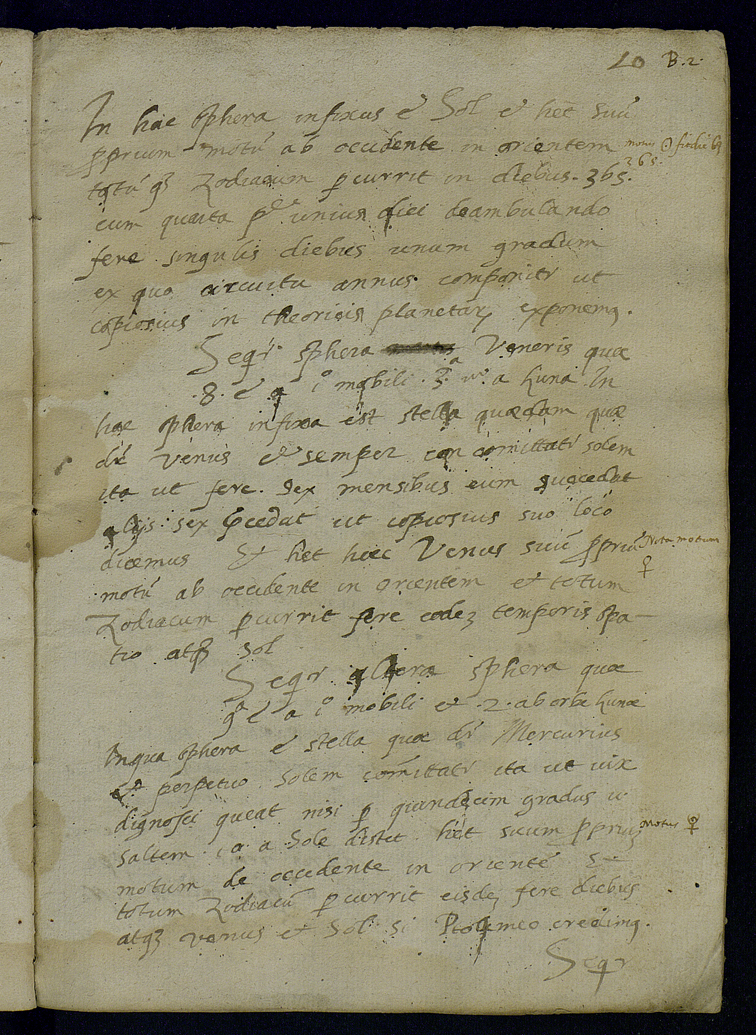 10 B.2.
In hac sphera infixus e Sol et het suũ
pprium motũ ab occidente in orientem
motus ☉ fit diebus
365.
totũqz Zodiacum pcurrit in diebus. 365.
cum quarta pte unius diei deambulando
fere singulis diebus unum gradum
ex quo circuitu annus componitr ut
copiosius in theoricis planetarz exponemqz.
Seqr sphera Veneris quæ
.8. e a i° mobili 3a uo a Luna In
hac sphera infixa est stella quædam quæ
dr Venus et semper con comittatr solem
ita ut fere sex mensibus eum succedat
alijs sex pcedat ut copiosius suo loco
dicemus Et het hæc Venus suũ ppriũ
Nota motum
♀
motũ ab occidente in orientem et totum
Zodiacum pcurrit fere eodez temporis spa-
tio atqz Sol
Seqr altera sphera quæ
9a e a i° mobili et 2. ab orbe Lunæ
In qua sphera e stella quæ dr Mercurius
et perpetuo Solem comittatr ita ut vix
dignosci queat nisi p quindecim gradus
saltem a Sole distet het suum ppriuz
Motus ☿
motum de occidente in orientẽ Et
totum Zodiacũ pcurrit eisdez fere diebus
atqz Venus et Sol si Ptolemeo credimqz.
Seqr